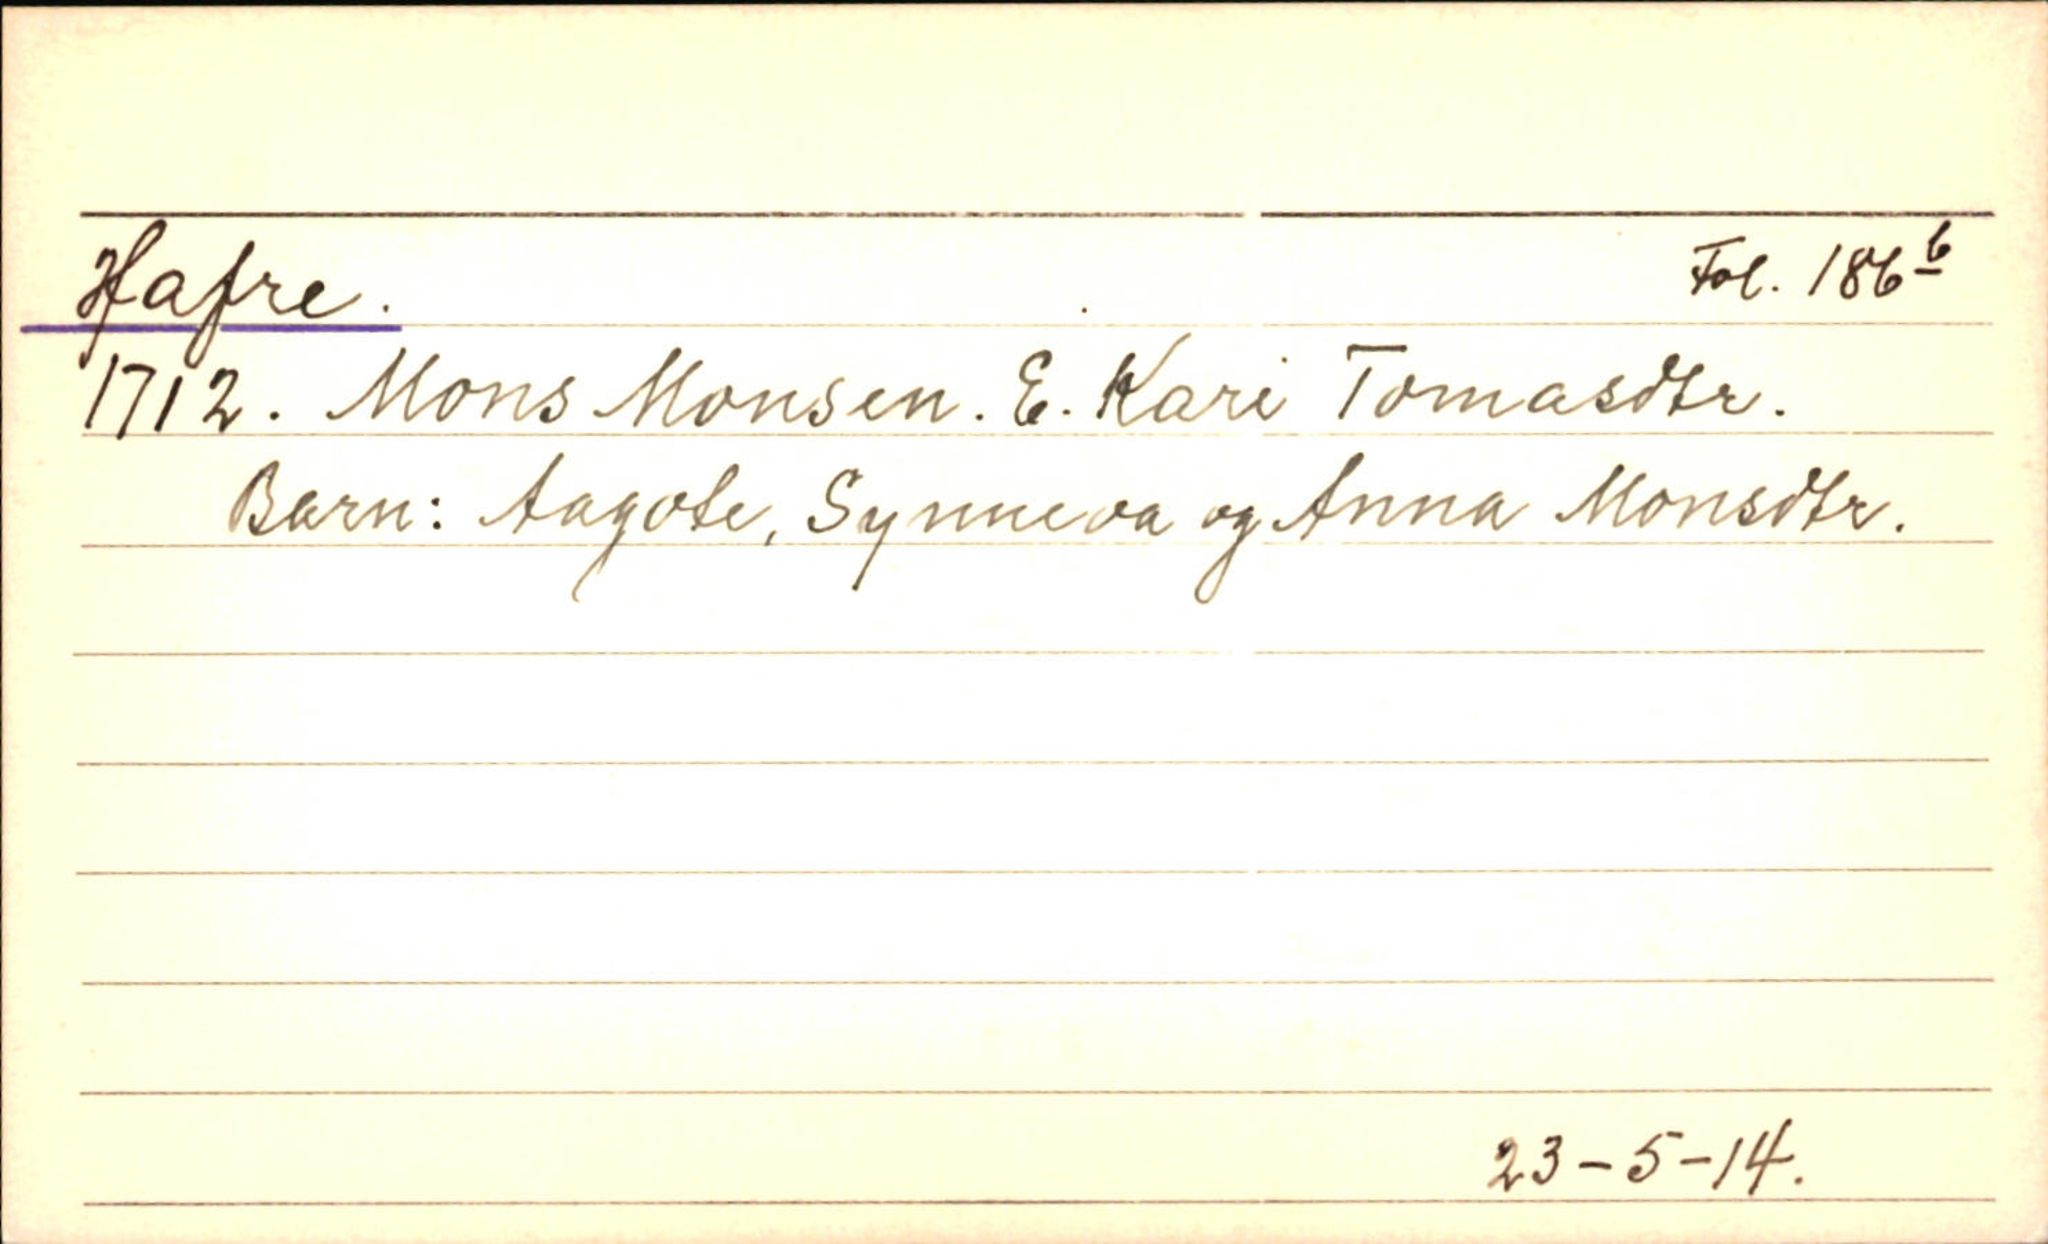 Hafre. Fol. 186 b
1712. Mons Monsen. E. Kari Tomasdtr.
Barn: Aagote, Synneva og Anna Monsdtr.
23-5-14.